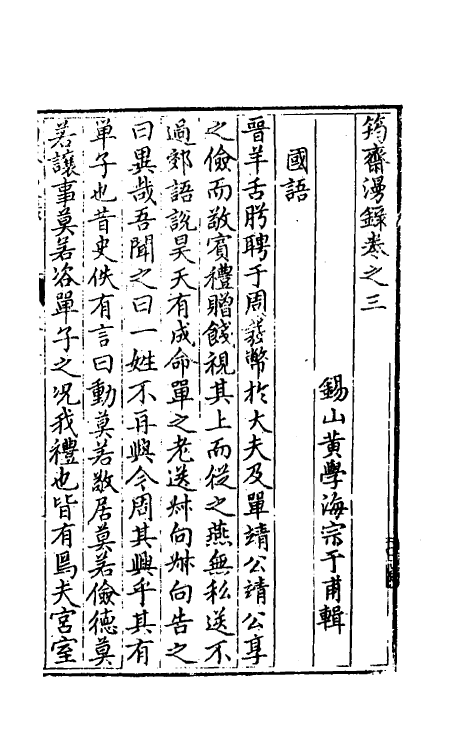 筠齋漫錄卷之三
錫山黃學海宗于甫輯
國語
晉羊舌肸聘于周發幣於大夫及單靖公靖公享
之儉而敬賓禮贈餞視其上而從之燕無私送不
過郊語說昊天有成命單之老送叔向叔向告之
曰異哉吾聞之曰一姓不再興今周其興乎其有
單子也昔史佚有言曰動莫若敬居莫若儉德莫
若讓事莫若咨單子之況我禮也皆有焉夫宮室